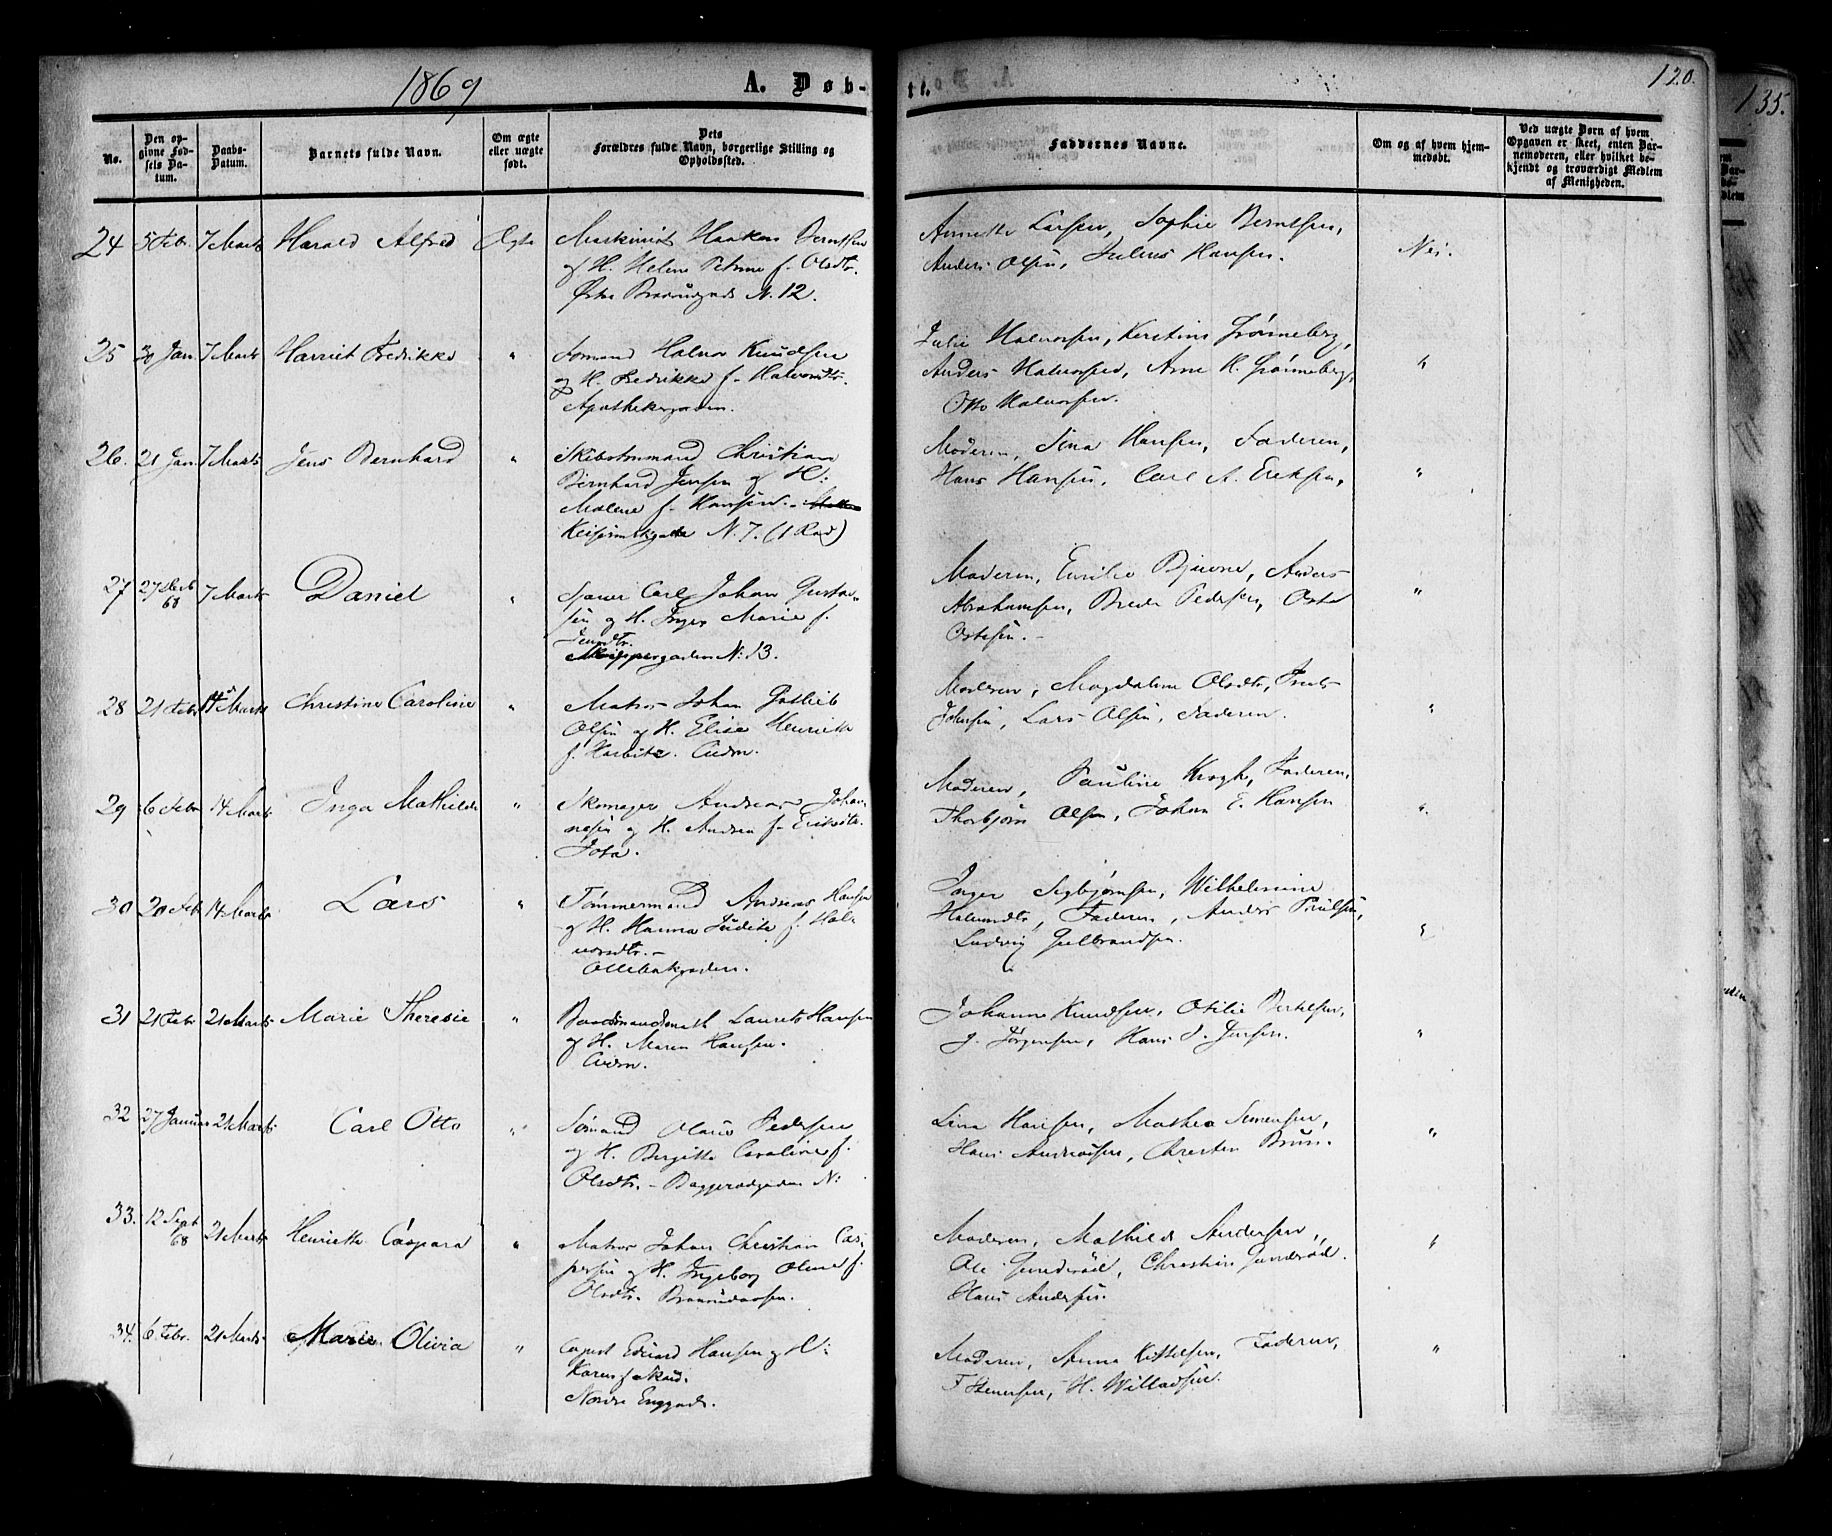 1869
A. Døb-
No.
Den op-
givne Fød-
sels Da-
tum.
Daabs-
Datum.
Barnets fulde Navn.
Om ægte
eller uægte
født.
Dets
Forældres fulde Navn, borgerlige Stilling og
Opholdssted.
24 5 Febr. 7 Marts Harald Alfred Ægte
Maskinist Haaken Berntsen
og H. Helene Petrine f. Olsdtr.
N. 12.
25 30 Jan. 7 Marts Harriet Fredrikke "
Sømand Halvor Knudsen
og H. Fredrikke f. Halvorsdtr.
Apothekergaden.
26. 21 Jan. 7 Marts Jens Bernhard "
Skibstømmermand Christian
Bernhard Jensen og H:
Malene f. Hansen.
N. 7. (1 Rod)
27 27 Decb 68 7 Marts Daniel "
Carl Johan Gustav-
sen og H. Inger Marie f.
Jensdtr.
N: 13.
28 21 Febr 14 Marts Christine Caroline "
Matros Johan Gotlieb
Olsen og H. Elise Henriette
f. Harbitz.
29 6 Febr 14 Marts Inga Mathilde "
Skomager Andreas Johan-
nesen og H. Andrea f. Eriksdtr.
30 20 Feb 14 Marts Lars "
Tømmermand Andreas Hansen
og H. Hanna Judithe f. Hal-
vorsdtr.-
31 21 Febr 21 Marts Marie Theresie "
Baadsmandsmath Laurits Hansen
og H. Maren Hansen.
32 27 Januar 21 Marts Carl Otto "
Sømand Olaus Pedersen
og H. Birgitte Caroline f.
Olsdtr. - N:
33. 12 Sept 68 21 Marts Henriette Caspara "
Matros Johan Christian Cas-
persen og H. Ingeborg Oline f.
Olsdtr.
34. 6 Febr. 21 Marts Marie Olivia "
August Edvard Hansen og H:
Karen f.
Nordre Enggade.
120.
Faddernes Navne.
Om og af hvem hjem-
medøbt.
Ved uægte Børn af hvem
Opgaven er skeet, enten Bar-
nemoderen, eller hvilket be-
kjendt og troværdigt Medlem
af Menigheden.
Annette Larsen, Sophie Berntsen,
Anders Olsen, Julius Hansen. Nei.
Julie Halvorsen, Kerstine Grønneberg,
Anders Halvorsen, Arne H. Grønneberg, "
Otto Halvorsen.
Moderen, Sina Hansen, Faderen,
Hans Hansen, Carl A. Eriksen, "
Moderen, Emilie Anders
Abrahamsen, Brede Pedersen, "
Moderen, Magdalene Olsdtr,
Johnsen, Lars Olsen, Faderen. "
Moderen, Pauline Krogh, Faderen,
Thorbjørn Olsen, Johan E. Hansen "
Inger Sigbjørnsen, Wilhelmine
Halvorsdtr, Faderen, Anders Paulsen,
Ludvig Gulbrandsen. "
Johanne Knudsen, Otilie Bertelsen,
J. Jørgensen, Hans J. Jensen. "
Lina Hansen, Mathea Simensen,
Hans Andreasen, Christen Bruun. "
Moderen, Mathilde Andersen,
Ole Gunderød, Christine Gunderød. "
Hans Andersen.
Moderen, Anna Kittelsen, Faderen, "
F. Stenersen, H. Willadsen.
135.